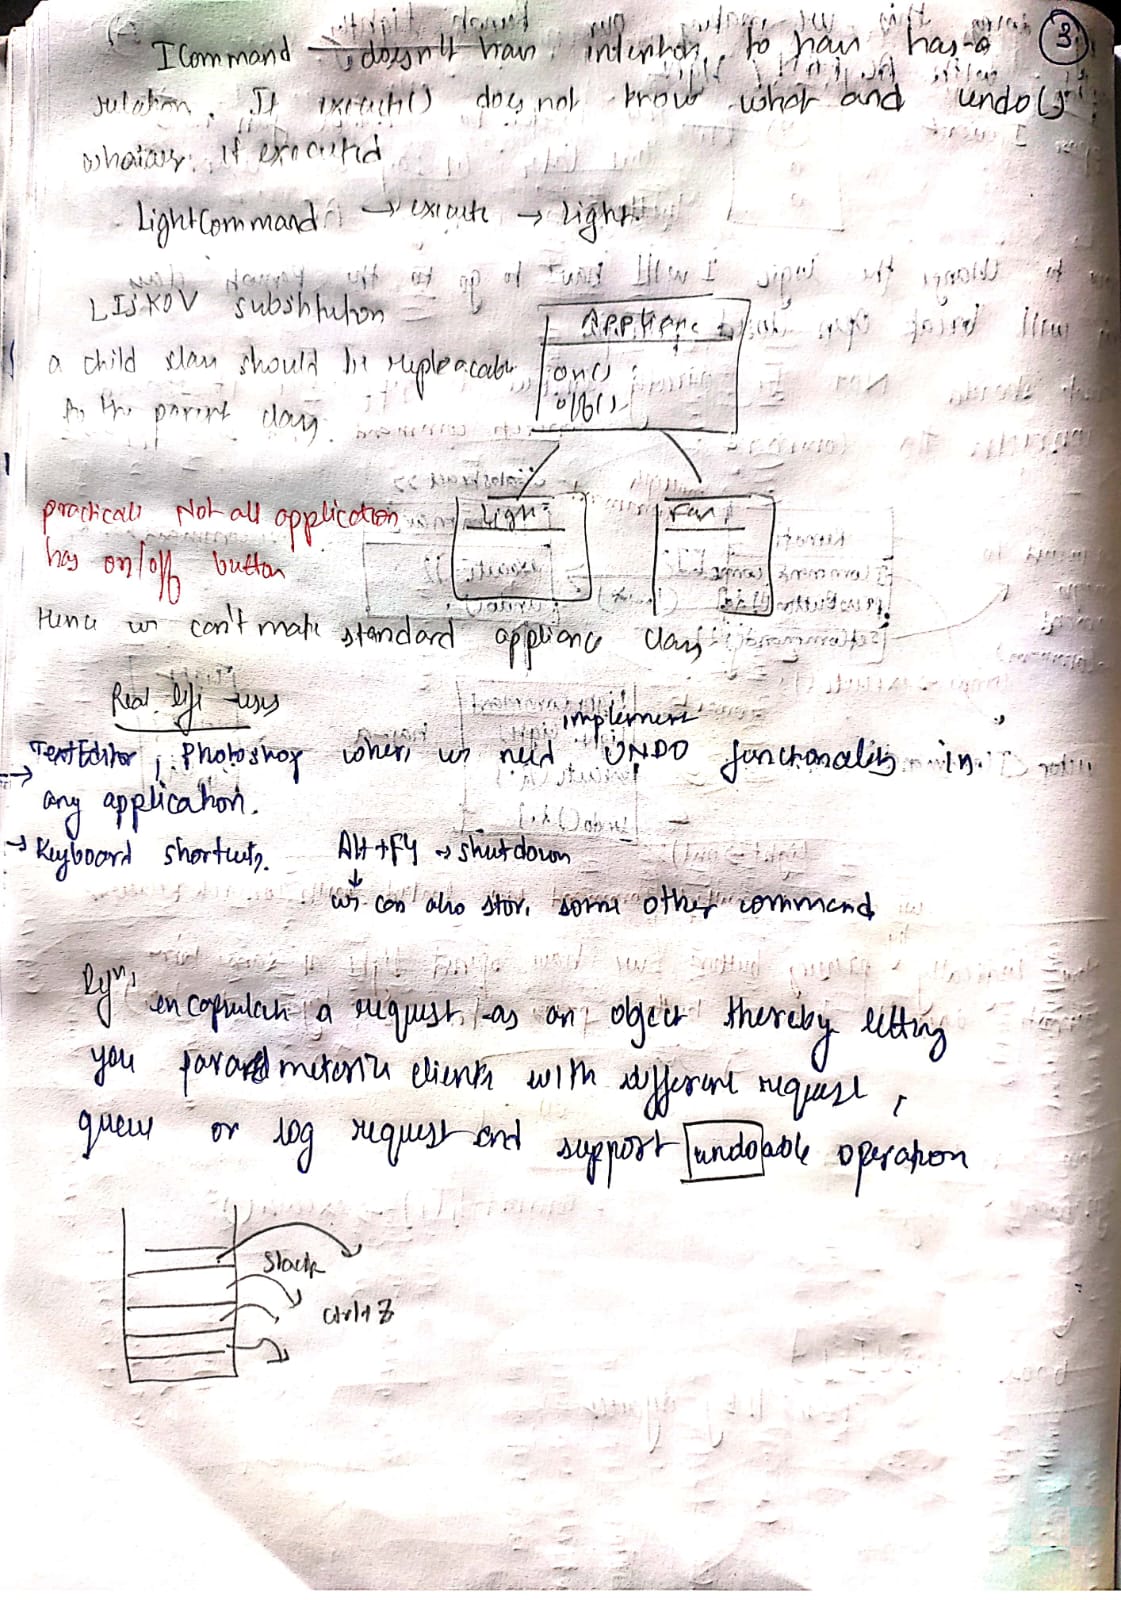 3.
ICommand → doesn't have intention to have has-a
relation. It execute() does not know what and undo()
whatever it executed
LightCommand → execute → Light
LISKOV substitution
a child class should be repleacable
to the parent class.
Appliance
on()
off()
Light
Fan
practicali Not all application
has on/off button
Hence we can't make standard appliance class
Real life uses
implement
→ TextEditor, Photoshop where we need UNDO functionality in
any application.
→ Keyboard shortcuts. Alt+F4 → shutdown
we can also store some other command
Defn,
encapsulate a request as an object thereby letting
you parameterize clients with different request,
queue or log request and support undoable operation
Stack
ctrl+Z